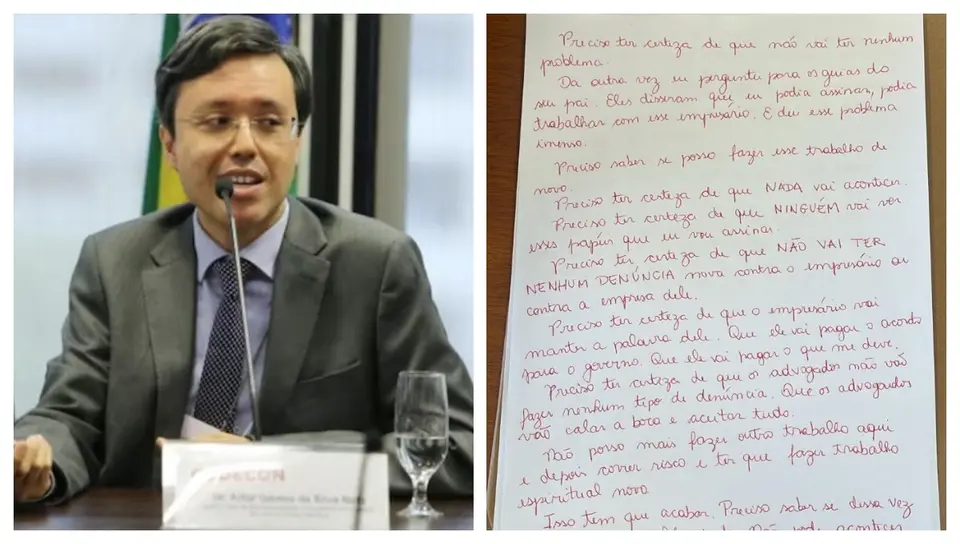 DECON
Preciso ter certeza de que não vai ter nenhum
problema.
Da outra vez eu perguntei para os guias do
seu pai. Eles disseram que eu podia assinar, podia
trabalhar com esse empresário. E deu esse problema
imenso.
Preciso saber se posso fazer esse trabalho de
novo.
Preciso ter certeza de que NADA vai acontecer.
Preciso ter certeza de que NINGUÉM vai ver
esses papéis que eu vou assinar.
Preciso ter certeza de que NÃO VAI TER
NENHUM DENÚNCIA nova contra o empresário ou
contra a empresa dele.
Preciso ter certeza de que o empresário vai
manter a palavra dele. Que ele vai pagar o acordo
para o governo. Que ele vai pagar o que me deve.
Preciso ter certeza de que os advogados não vão
fazer nenhum tipo de denúncia. Que os advogados
vão calar a boca e aceitar tudo.
Não posso mais fazer outro trabalho aqui
e depois correr risco e ter que fazer trabalho
espiritual novo.
Isso tem que acabar. Preciso saber se dessa vez